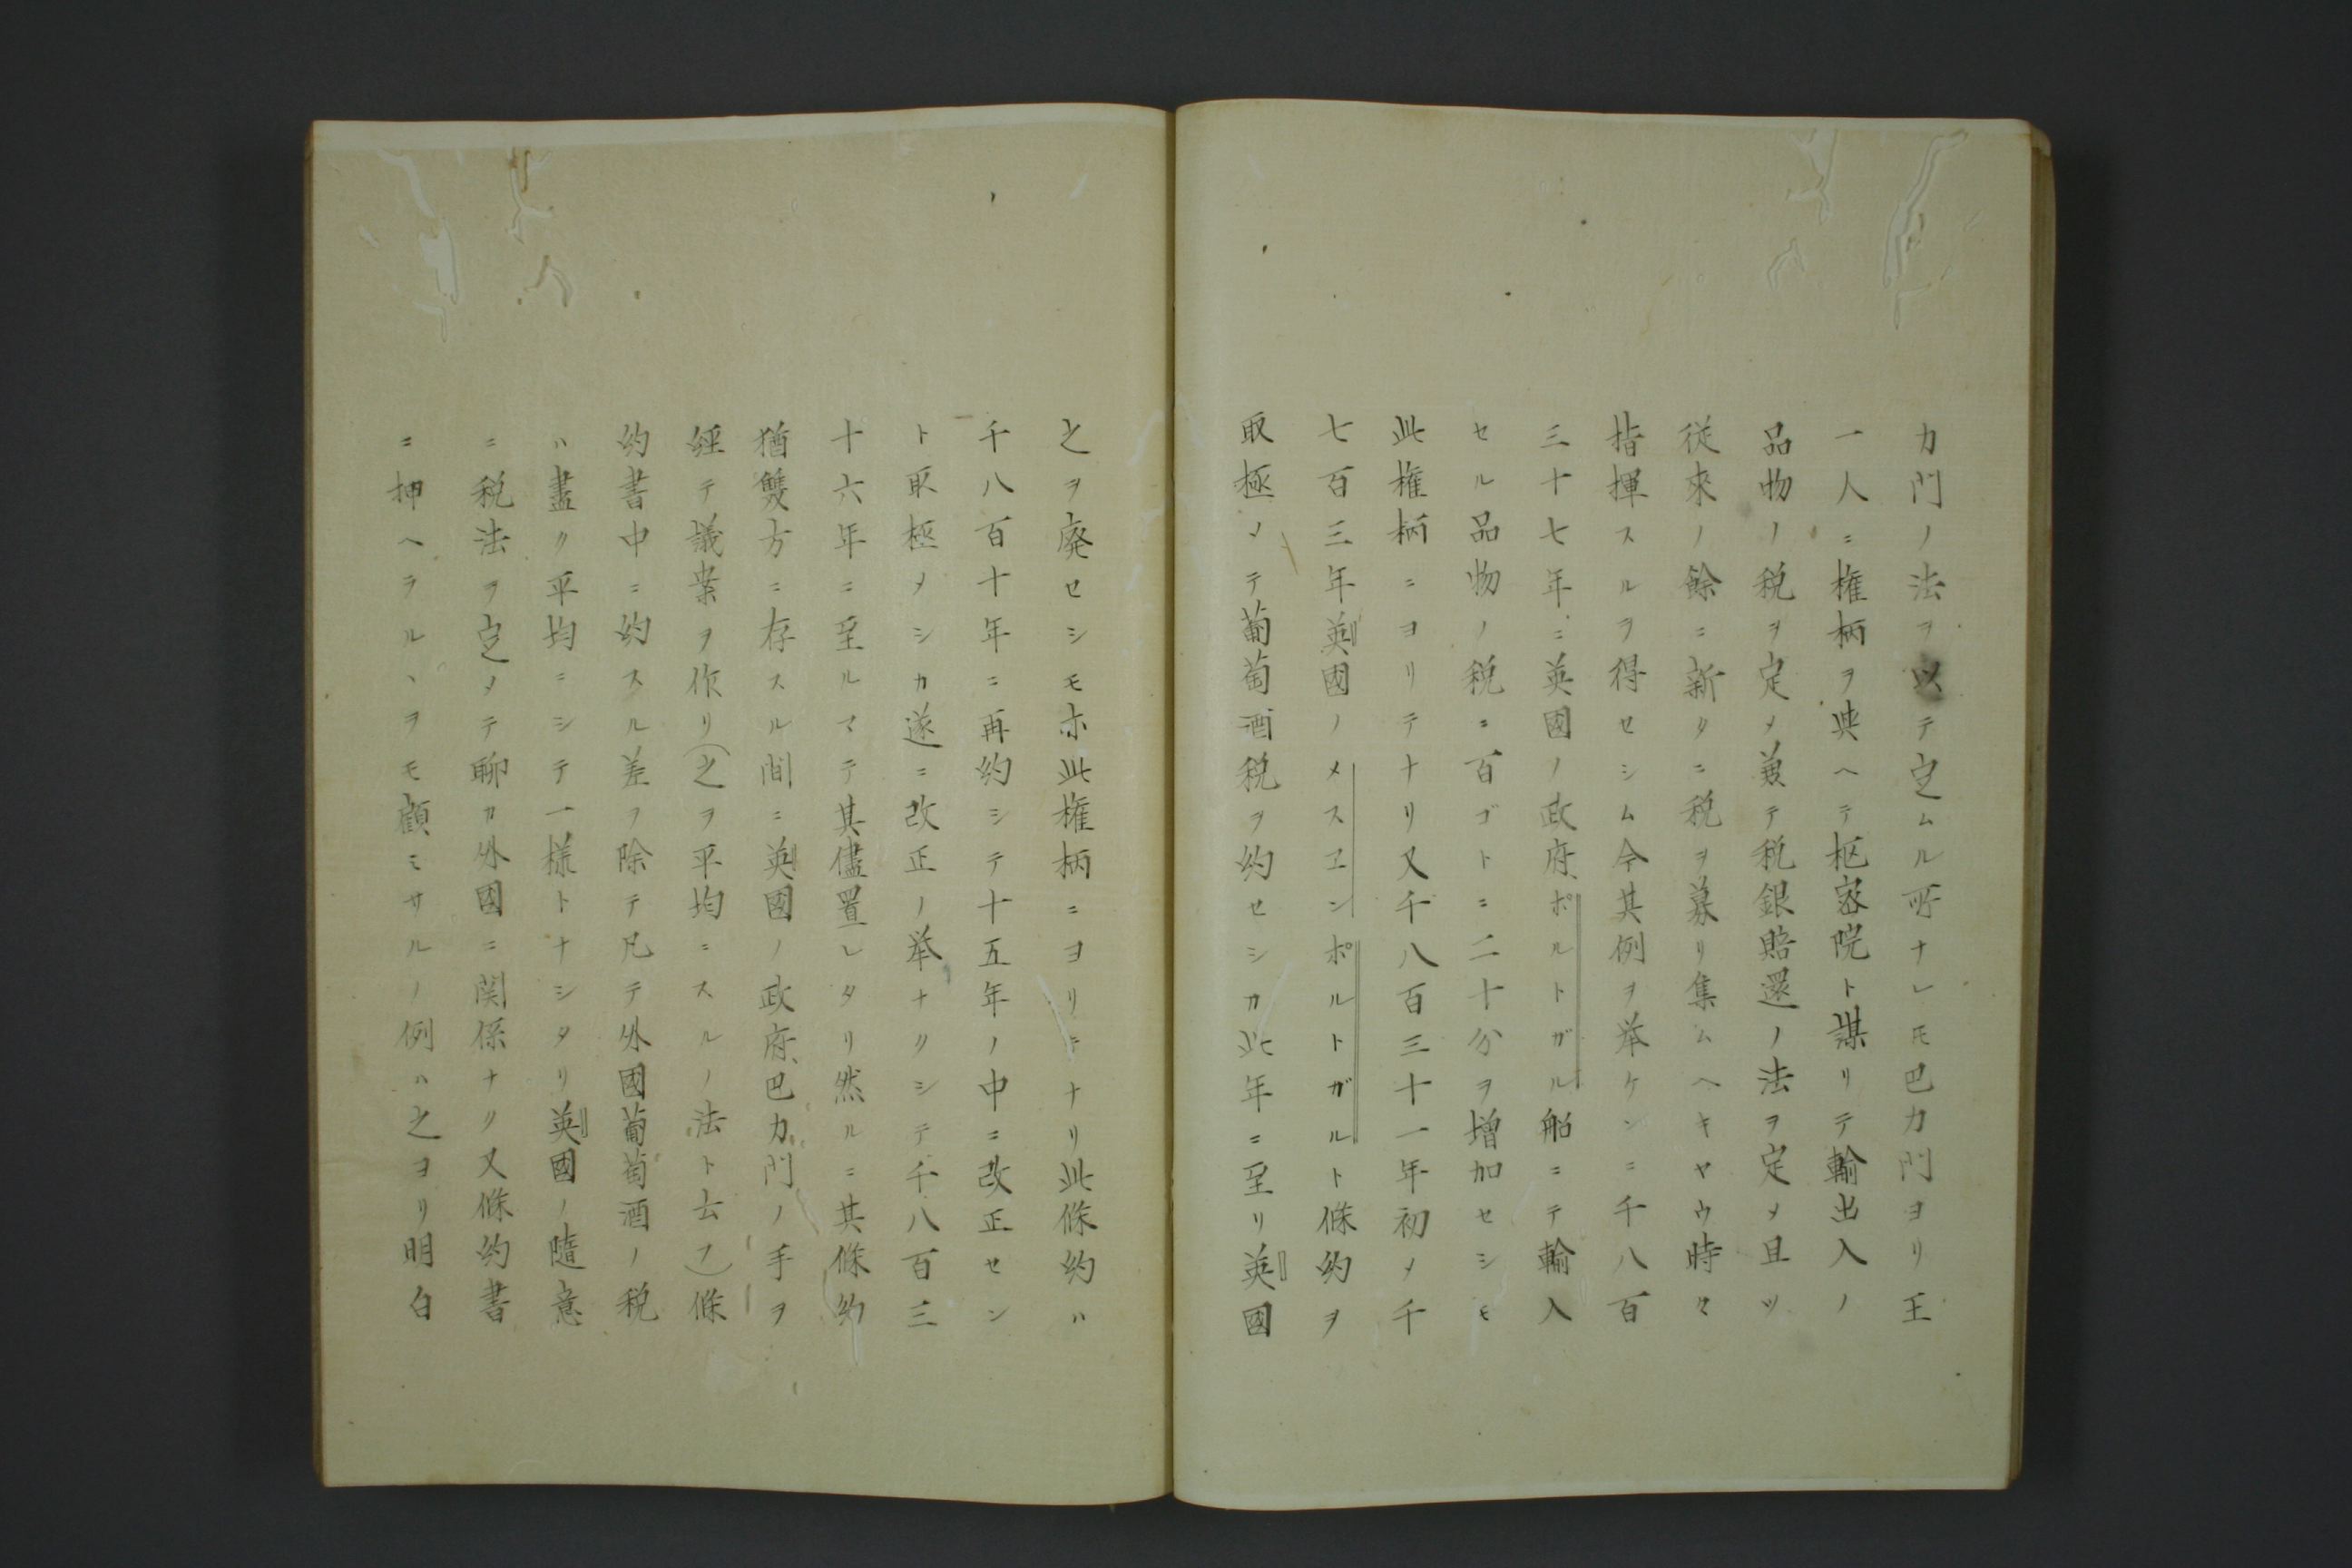 力門ノ法ヲ以テ定ムル所ナレ𪜈巴力門ヨリ王
一人ニ権柄ヲ與ヘテ枢密院ト謀リテ輸出入ノ
品物ノ税ヲ定メ兼テ税銀賠還ノ法ヲ定メ且ツ
従來ノ餘ニ新タニ税ヲ募リ集ムヘキヤウ時々
指揮スルヲ得セシム今其例ヲ挙ケンニ千八百
三十七年ニ英國ノ政府ポルトガル船ニテ輸入
セル品物ノ税ニ百ゴトニ二十分ヲ増加セシモ
此権柄ニヨリテナリ又千八百三十一年初メ千
七百三年英國ノメスエンポルトガルト條約ヲ
取極メテ葡萄酒税ヲ約セシカ此年ニ至リ英國
之ヲ廃セシモ亦此権柄ニヨリテナリ此條約ハ
千八百十年ニ再約シテ十五年ノ中ニ改正セン
ト取極メシカ遂ニ改正ノ挙ナクシテ千八百三
十六年ニ至ルマテ其儘置レタリ然ルニ其條約
猶雙方ニ存スル間ニ英國ノ政府巴力門ノ手ヲ
経テ議案ヲ作リ(之ヲ平均ニスルノ法ト云フ)條
約書中ニ約スル差ヲ除テ凡テ外國葡萄酒ノ税
ハ盡ク平均ニシテ一様トナシタリ英國ノ隨意
ニ税法ヲ定メテ聊カ外國ニ関係ナク又條約書
ニ押ヘラルヽヲモ顧ミサルノ例ハ之ヨリ明白